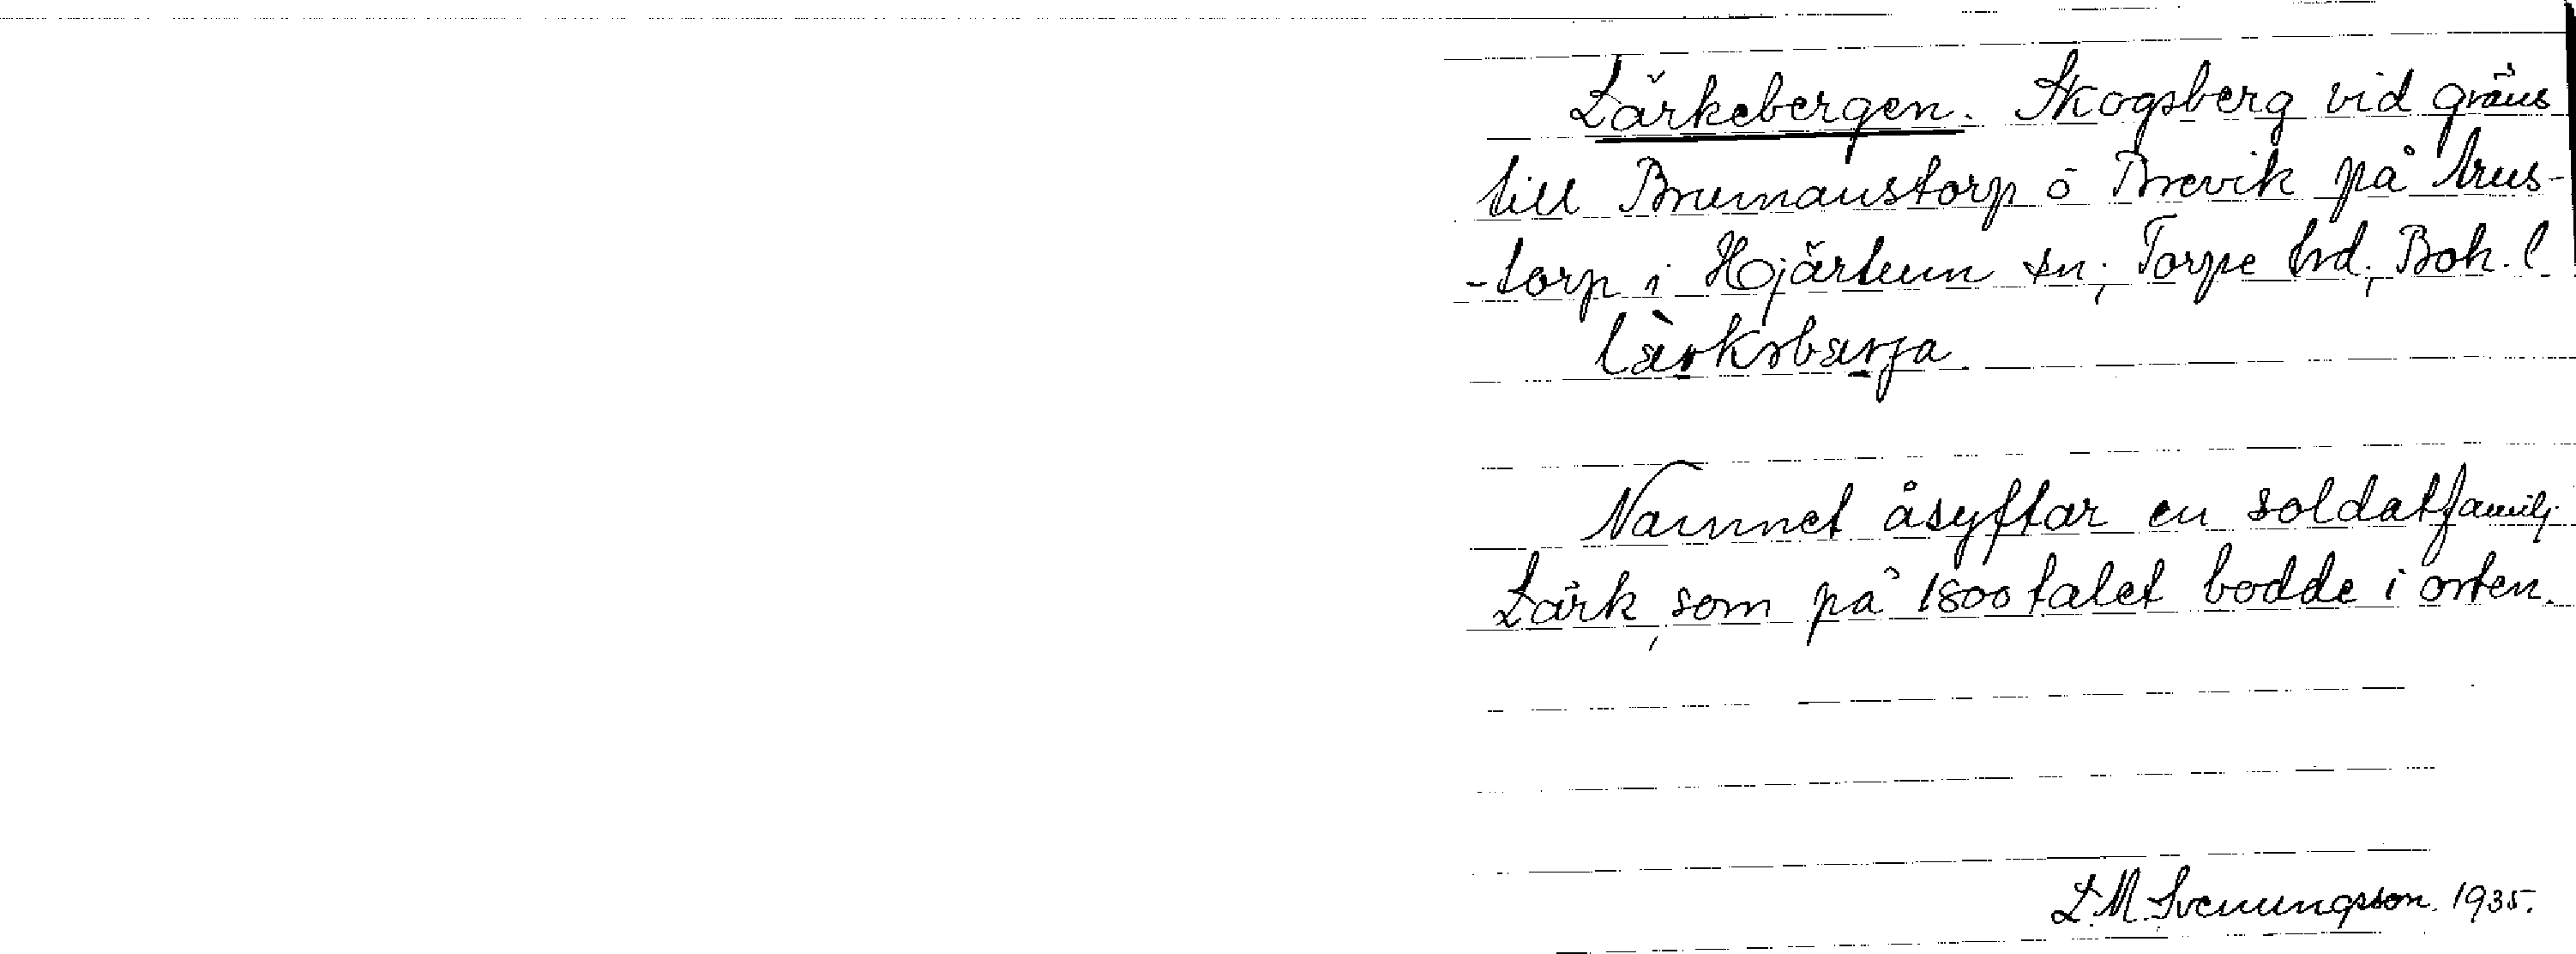 Lärkebergen. Skogsberg vid gräns
till Brumanstorp o Brevik på Arus-
-torp i Hjärtum sn; Torpe hrd; Boh. l.
lärksbærja
Namnet åsyftar en soldatfamilj
Lärk, som på 1800 talet bodde i orten.
L. M. Svenungsson. 1935.